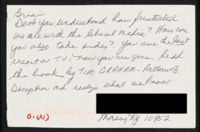 Brian
Don't you understand how frustrated
we are with the liberal media? How can
you also take sides? You are the best
reporter on TV, now you are gone. Read
the book by TIM GRAHAM - Pattern of
Deception and realize what we know
O.(W)
Thorsey, Ny 10952